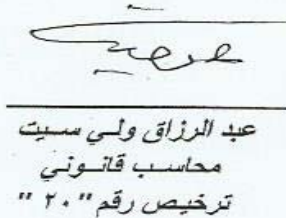 عبد الرزاق ولي سيت
محاسب قانوني
ترخيص رقم "٢٠"